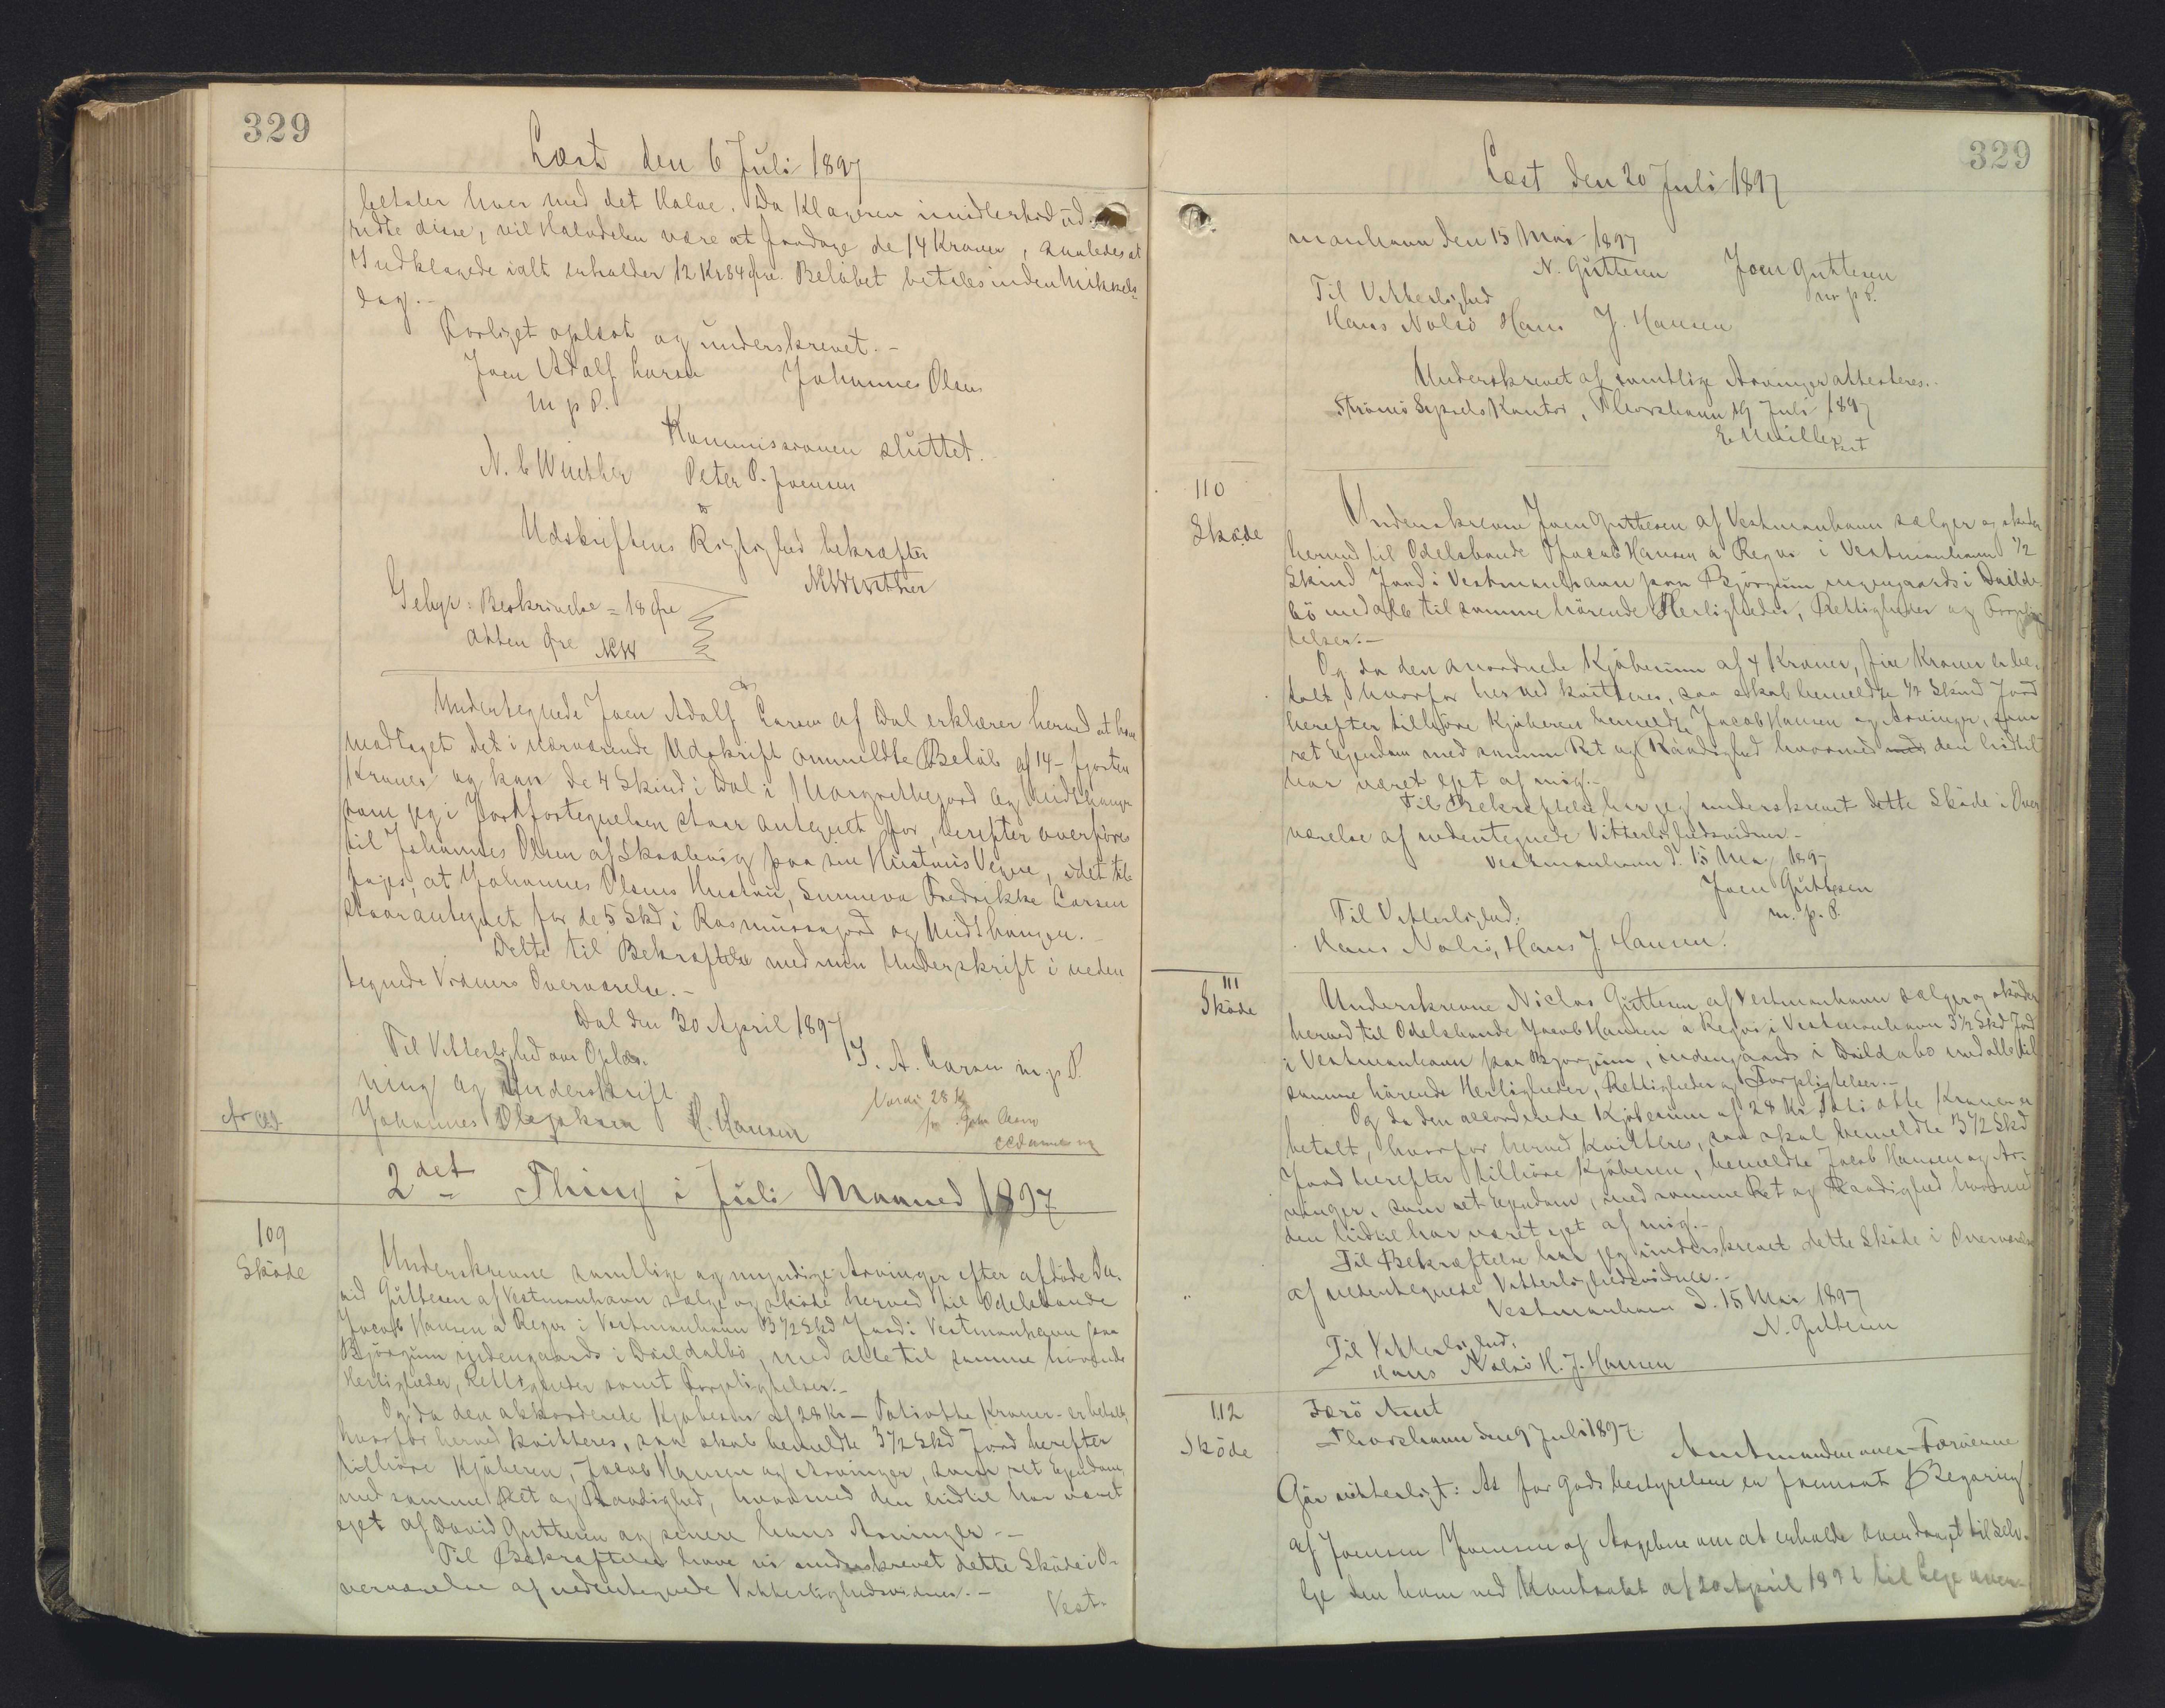 329
Læst den 6 Juli 1897
betaler hver med det Halve. Da Klageren imidlertid ud-
redte disse, vil Halvdelen være at fradrage de 14 Kroner, saaledes at
Indklagede ialt erholder 12 Kr 84 Øre. Beløbet betales inden Mikkels-
dag.-
Forliget oplæst og underskrevet.-
Joen Adolf Larsen Johannes Olsen
m p P.
Kommissionen sluttet.
N. C Winther Peter P. Joensen
Udskriftens Rigtighed bekræfter
NCWinther
Gebyr: Beskrivelse = 18 Øre
atten Øre NCW
Undertegnede Joen Adolf Larsen af Dal erklærer herved at have
modtaget det i nærværende Udskrift ommeldte Beløb af 14 - fjorten
Kroner og kan de 4 Skind i Dal i Margrethegjord og Midthaugen
som jeg i Jordfortegnelsen staar antegnet for, herefter overføres
til Johannes Olsen af Skaalevig paa sin Hustrus Vegne, idet til-
føjes, at Johannes Olsens Hustru, Sunneva Fredrikke Larsen
staar antegnet for de 5 Skd i Rasmussagjord og Midthaugen.-
Dette til Bekræftelse med min Underskrift i neden-
tegnede Vidners Overværelse.-
Dal den 30 April 1897
Til Vitterlighed om Oplæs- J. A. Larsen m. p. P.
ning og Underskrift
Johannes H. Hansen
Værdi 28 K
2det Thing i Juli Maaned 1897
109
Skøde
Underskrevne samtlige og myndige Arvinger efter afdøde Da-
vid Guttesen af Vestmanhavn sælge og skøde herved til Odelsbonde
Jacob Hansen a Regvi i Vestmanhavn 3 1/2 Skd Jord i Vestmanhavn paa
Bjørgum indengaards i Dvildalbø, med alle til samme hørende
Herligheder, Rettigheder samt Forpligtelser.-
Og da den akkorderede Kjøbesum af 28 Kr - Toti otte Kroner - er betalt,
hvorfor herved kvitteres, saa skal bemeldte 3 1/2 Skd Jord herefter
tilhøre Kjøberen, Jacob Hansen og Arvinger, som ret Ejendom,
med samme Ret og Raadighed, hvormed den hidtil har været
ejet af David Guttesen og senere hans Arvinger.-
Til Bekræftelse have vi underskrevet dette Skøde i O-
verværelse af nedentegnede Vitterlighedsvidner.-
Vest-
329
Læst den 20 Juli 1897
manhavn den 15 Mai 1897
N. Guttesen Joen Guttesen
m p P.
Til Vitterlighed
Hans Nolsø Hans J. Hansen
Underskrevet af samtlige Arvinger attesteres.-
Strømø Syssels Kontor, Thorshavn 19 Juli 1897
E Müller
110
Skøde
Underskrevne Joen Guttesen af Vestmanhavn sælger og skøder
herved til Odelsbonde Jacob Hansen a Regvi i Vestmanhavn 1/2
Skind Jord i Vestmanhavn paa Bjørgum indengaards i Dvildal-
bø med alle til samme hørende Herligheder, Rettigheder og Forplig-
telser.-
Og da den akkorderede Kjøbesum af 4 Kroner, fire Kroner er be-
talt, hvorfor herved kvitteres, saa skal bemeldte 1/2 Skind Jord
herefter tilhøre Kjøberen bemeldte Jacob Hansen og Arvinger, som
ret Ejendom med samme Ret og Raadighed hvormed med den hidtil
har været ejet af mig.-
Til Bekræftelse har jeg underskrevet dette Skøde i Over-
værelse af nedentegnede Vitterlighedsvidner.-
Vestmanhavn d. 15 Mai 1897
Joen Guttesen
m. p. P.
Til Vitterlighed.
Hans Nolsø, Hans J. Hansen.
111
Skøde
Underskrevne Niclas Guttesen af Vestmanhavn sælger og skøder
herved til Odelsbonde Jacob Hansen a Regvi i Vestmanhavn 3 1/2 Skd Jord
i Vestmanhavn paa Bjørgum, indengaards i Dvildalbø med alle til
samme hørende Herligheder, Rettigheder og Forpligtelser.-
Og da den accorderede Kjøbesum af 28 Kr Toti otte Kroner er
betalt, hvorfor herved kvitteres, saa skal bemeldte 3 1/2 Skd
Jord herefter tilhøre Kjøberen, bemeldte Jacob Hansen og Ar-
vinger, som ret Ejendom, med samme Ret og Raadighed hvormed
den hidtil har været ejet af mig.-
Til Bekræftelse har jeg underskrevet dette Skøde i Overværelse
af nedentegnede Vitterlighedsvidner.-
Vestmanhavn d. 15 Mai 1897
N. Guttesen
Til Vitterlighed.
Hans Nolsø H. J. Hansen
112
Skøde
Færø Amt
Thorshavn den 9 Juli 1897
Amtmanden over Færøerne
Gør vitterligt: At for Godsbestyrelsen er fremsat Begæring
af Joensen af om at erholde overdraget til Selv-
eje den ham ved Kontrakt af 20 April 1892 til Leje over-